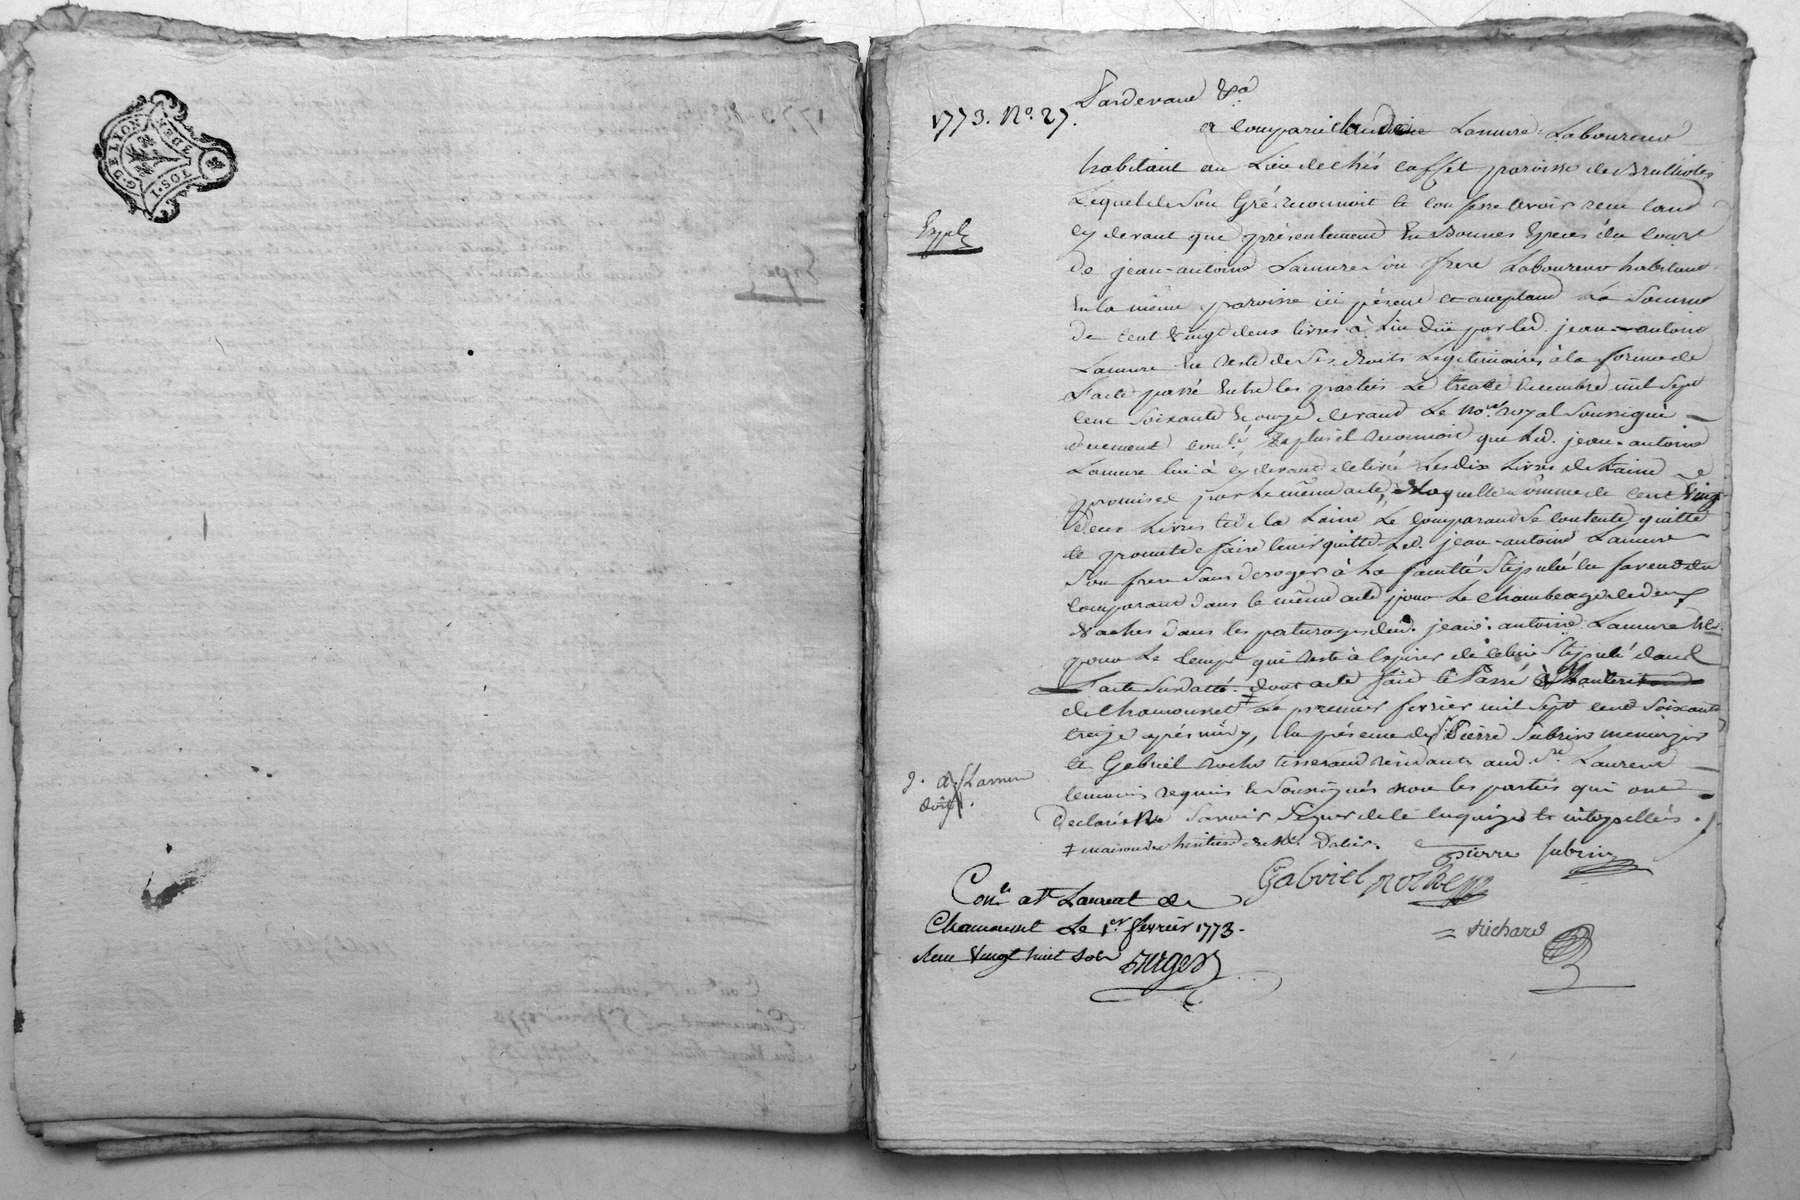 G. DE LYON
2. DEN.
1. SOL
1773. N.º 27.
Pardevant &a
a comparu Claude Lamure Laboureur
habitant au Lieu de chés caffet paroisse de Brullioles
Lequel de Son Gré reconnoit et confesse avoir reçu tant
cy devant que présentement En Bonnes Especes du cours
de jean-antoine Lamure Son frere Laboureur habitant
En la même paroisse ici présent et acceptant La Somme
de cent vingt deux livres à Lui düe par led. jean-antoine
Lamure En reste de Ses droits Legitimaires à la forme de
L'acte passé Entre les parties Le trente decembre mil Sept
cent Soixante & onze devant Le no.re royal Soussigné
duement con.lé, De plus il reconnoit que led. jean-antoine
Lamure lui à cy devant delivré Les dix Livres de Laine
promises par le même acte, De laquelle Somme de cent vingt
deux Livres et de la Laine Le comparant Se contente, quitte
et promet de faire tenir quitte Led. jean-antoine Lamure
Son frere Sans deroger à la faculté Stipulée en faveur du
comparant dans le même acte pour Le chambeage de deux
vaches dans les paturages dud. jean-antoine Lamure
pour Le temps qui reste à Expirer de celui Stipulé dans
L'acte Susdatté. dont acte fait et Passé à St Laurent
de Chamousset ‡ Le premier fevrier mil Sept cent Soixante
treize après midy, En présence de Sr Pierre Subrin menuizier
et Gabriel roche tisserand résidants aud. St. Laurent
temoins requis et Soussignés non les parties qui ont
Declaré Ne Savoir Signer de ce Enquises et interpellées.
‡ maison des heritiers de Me. Dalin.
Expel
J. a. Lamure
doit
pierre subrin
Gabriel roche
richard
Con.lé a St Laurent de
Chamousset Le 1.er fevrier 1773.
Reçu vingt huit sols